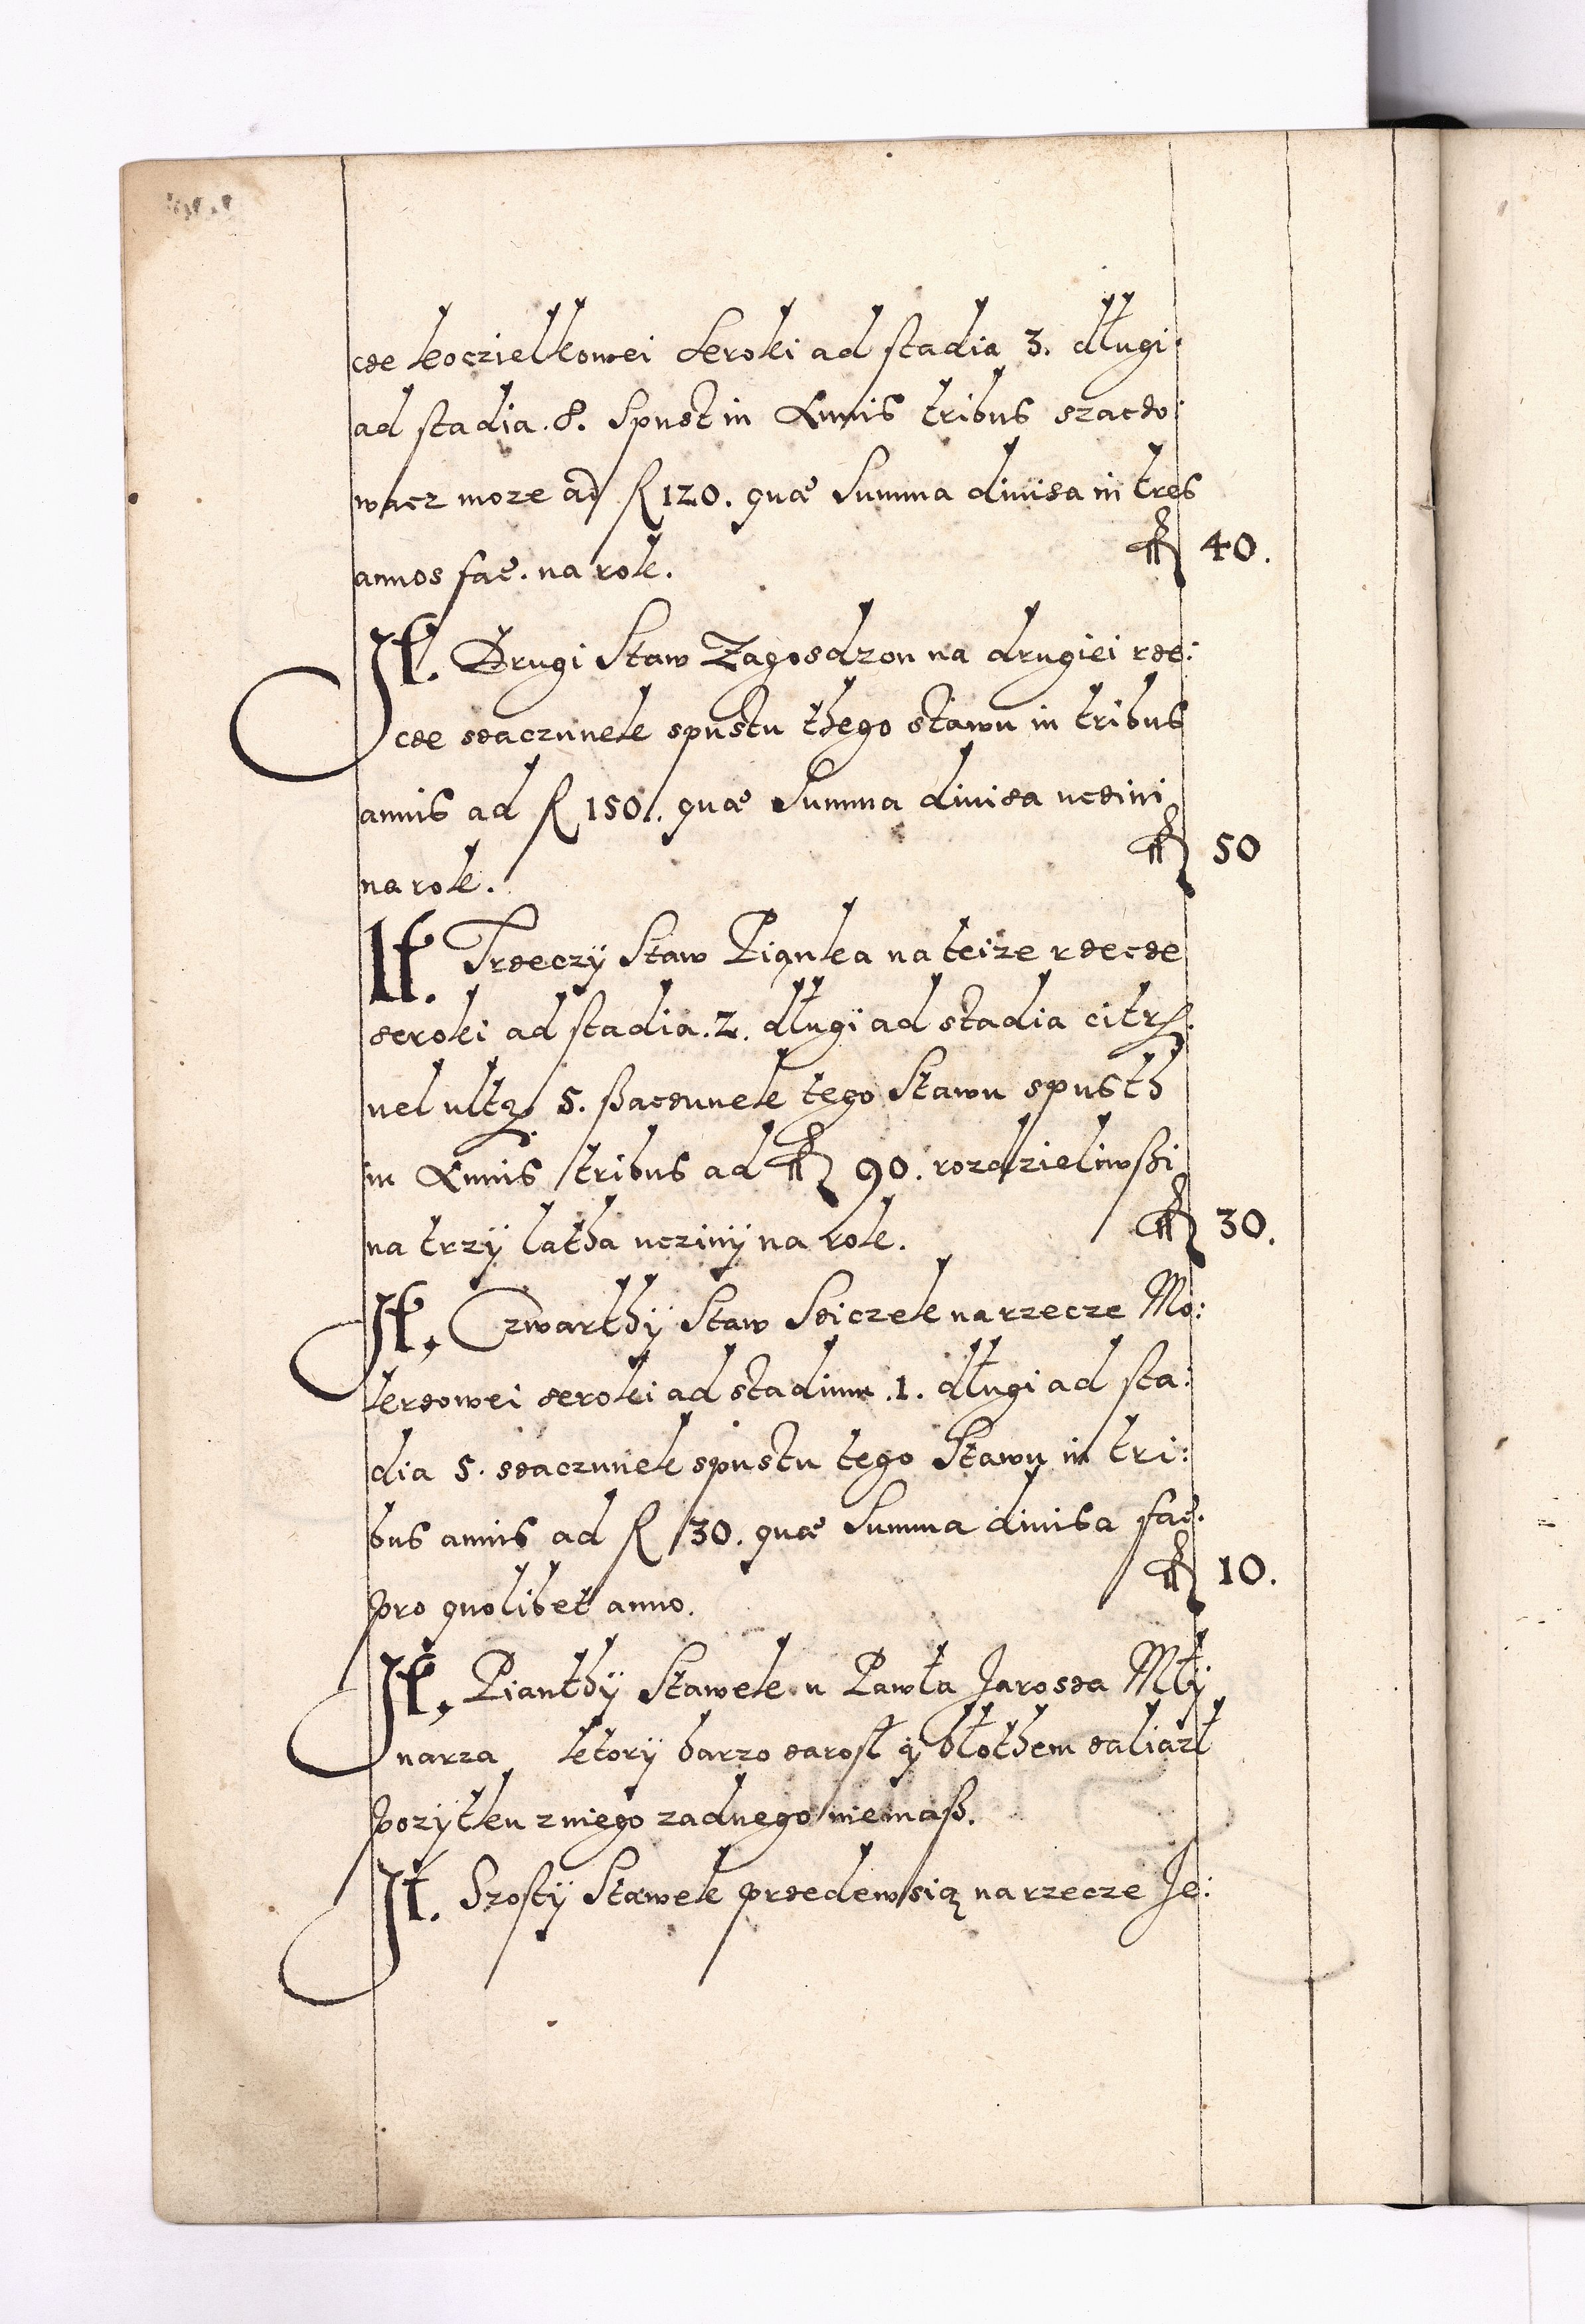 cze koczielkowei Seroki ad stadia 3. długi
ad stadia. 8. Spust in Annis tribus szaczo:
wacz moze ad R 120. quæ Summa diuisa in tres
annos fac. na rok. fl 40.
It. Drugi Staw Zagosdzon na drugiei rze:
cze szaczunek spustu thego stawu in tribus
annis ad R 150. quæ Summa diuisa uczini
na rok. fl 50
It. Trzeczÿ Staw Piąnka na teize rzecze
szeroki ad stadia. 2. długi ad stadia citr.
uel ultr. 5. ßaczunek tego Stawu spusth
in Annis tribus ad fl 90. rozdzieliwßi
na trzÿ latha uczinÿ na rok. fl 30.
It. Czwarthÿ Staw Siczek na rzecze Mo:
krzowei szeroki ad stadium .1. długi ad sta:
dia 5. szaczunek spustu tego Stawu in tri:
bus annis ad R 30. quæ Summa diuisa fac.
pro quolibet anno. fl 10.
It. Pianthÿ Stawek u Pawła Jarosza Młÿ
narza ktorÿ barzo zarosł ÿ błothem zaliazł
pozÿtku z niego zadnego niemaß.
It. Szostÿ Stawek przedewsią na rzecze Je: